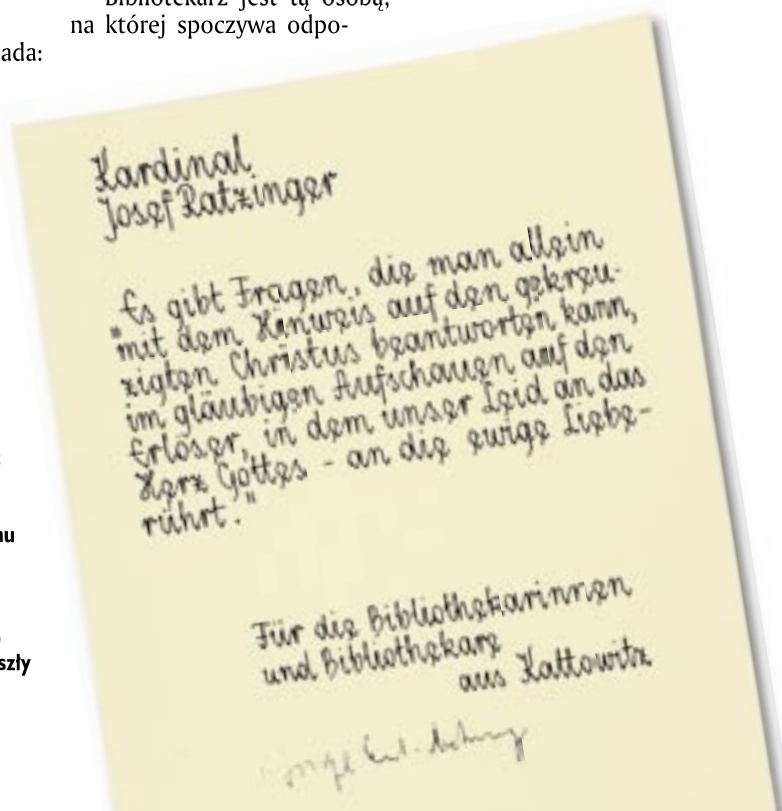 Bibliotekarz jest tą osobą,
na której spoczywa odpo-
ada:
Kardinal
Josef Ratzinger
"Es gibt Fragen, die man allein
mit dem Hinweis auf den gekreu-
zigten Christus beantworten kann,
im gläubigen Aufschauen auf den
Erlöser, in dem unser Leid an das
Herz Gottes - an die ewige Liebe-
rührt."
Für die Bibliothekarinnen
und Bibliothekare
aus Kattowitz
szły